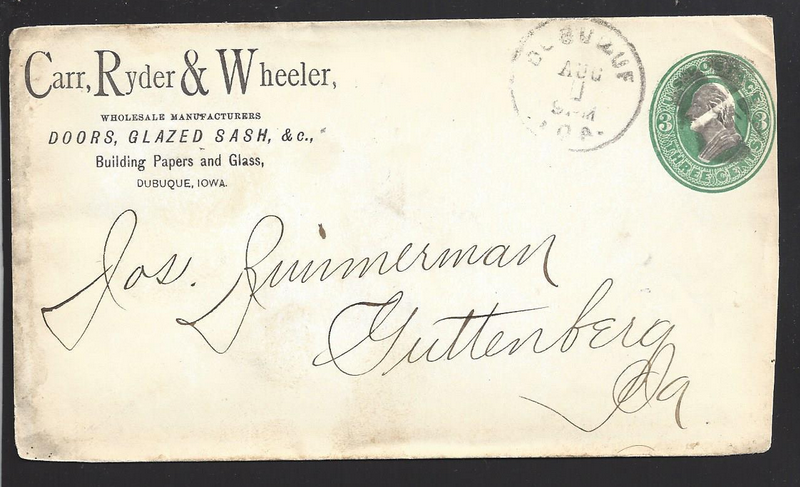 Carr, Ryder & Wheeler,
WHOLESALE MANUFACTURERS
DOORS, GLAZED SASH, &c.,
Building Papers and Glass,
DUBUQUE, IOWA.
DUBUQUE
AUG
1
9 PM
IOA.
3 3
THREE CENTS
Jos. Zimmerman
Guttenberg
Ia